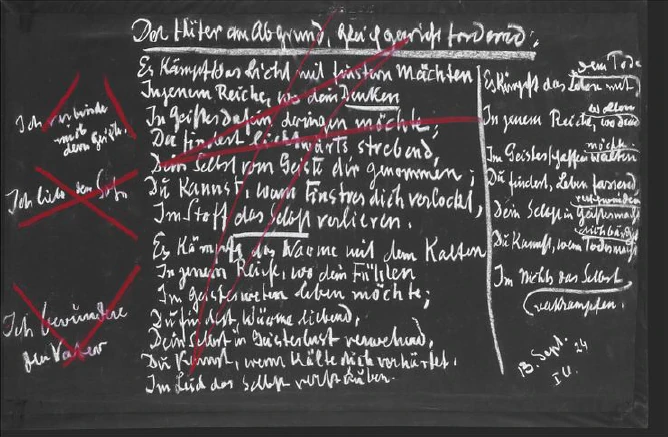 Der Hüter am Abgrund, gleichgewicht fordernd:
Es Kämpft das Licht mit finstern Mächten
In jenem Reiche, wo dein Denken
In Geistesdasein dringen möchte;
Du findest, lichtwärts strebend,
Dein Selbst vom Geiste dir genommen;
Du Kannst, wenn Finstres dich verlockt,
Im Stoff das Selbst verlieren.
Es Kämpft das Warme mit dem Kalten
In jenem Reiche, wo dein Fühlen
Im Geistesweben leben möchte;
Du findest, Wärme liebend,
Dein Selbst in Geisteslust verwehend,
Du Kannst, wenn Kälte dich verhärtet,
Im Leid das Selbst verstäuben.
Ich verbinde
mich
dem Geiste
Ich liebe den Sohn
Ich bewundere
den Vater
dem Tode
Es Kämpft das Leben mit
In jenem Reiche, wo dein
möchte
Im Geistesschaffen walten
Du findest, Leben fassend
Dein Selbst in Geistesmacht
Du Kannst, wenn Todesmacht
Im Nichts das Selbst
verkrampfen.
13. Sept. 24